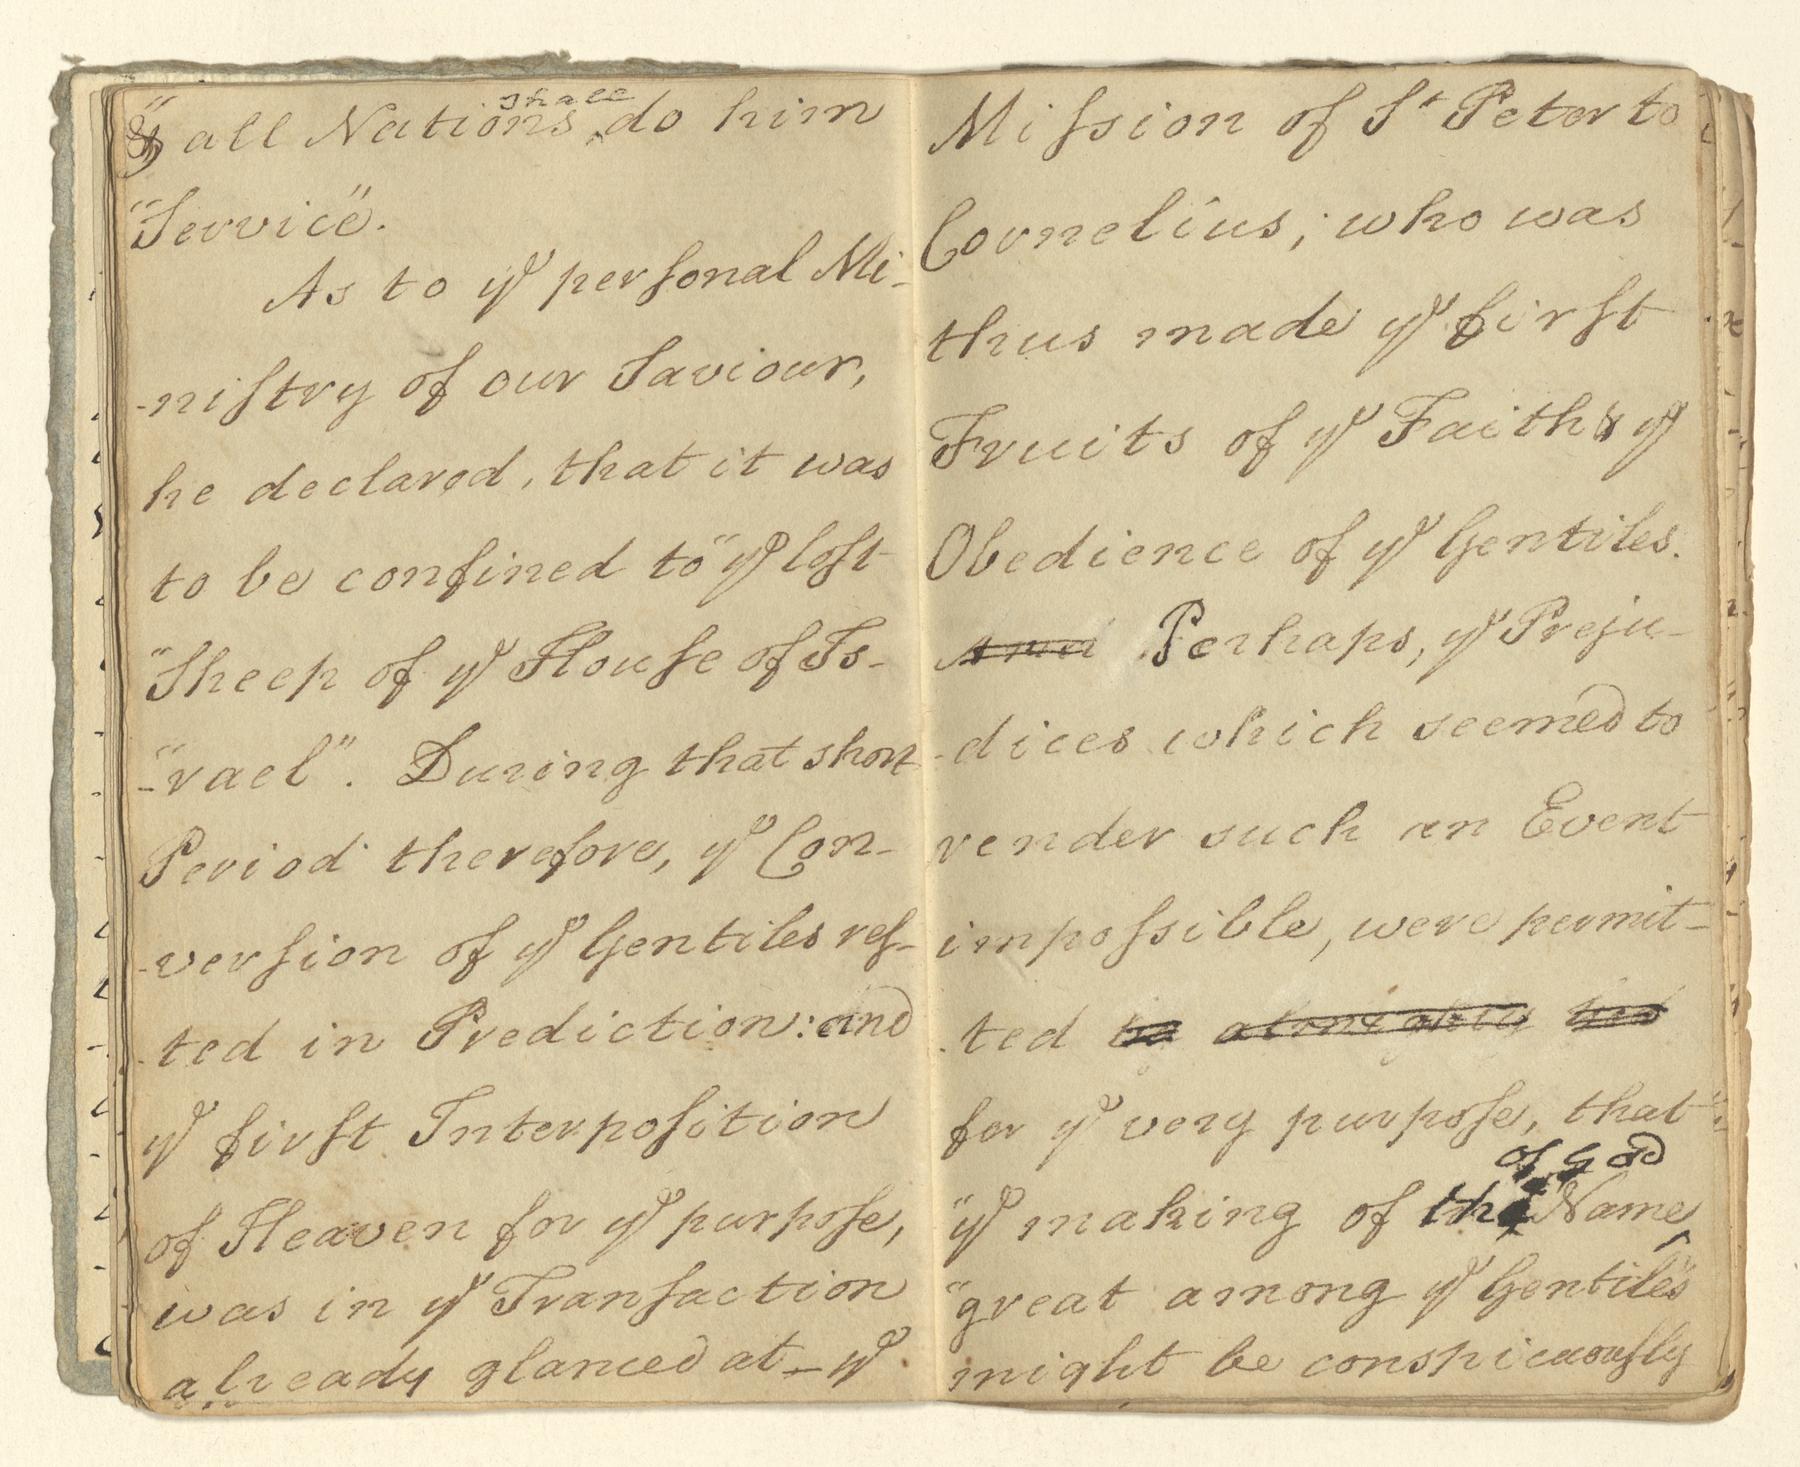 "& all Nations shall do him
"Service".
As to ye personal Mi-
-nistry of our Saviour,
he declared, that it was
to be confined to "ye lost
"Sheep of ye House of Is-
"-rael". During that short
Period therefore, ye Con-
-version of ye Gentiles res-
-ted in Prediction: and
ye first Interposition
of Heaven for ye purpose,
was in ye Transaction
already glanced at_ ye
Mission of St Peter to
Cornelius; who was
thus made ye first
Fruits of ye Faith & ye
Obedience of ye Gentiles.
And Perhaps, ye Preju-
-dices which seemed to
render such an Event
impossible, were permit-
-ted
for ye very purpose, that
"ye making of the Name of God
"great among ye Gentiles"
might be conspicuously